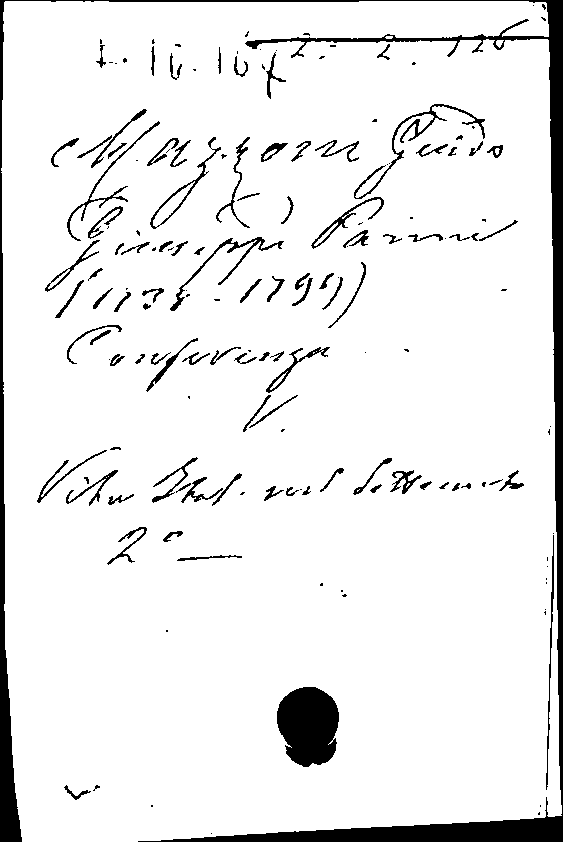 1. 16. 164 2. 2. 126
Mazzoni Guido
Giuseppe Parini
(1738-1799)
Conferenza
V.
Vita Ital. nel Settecento
2°